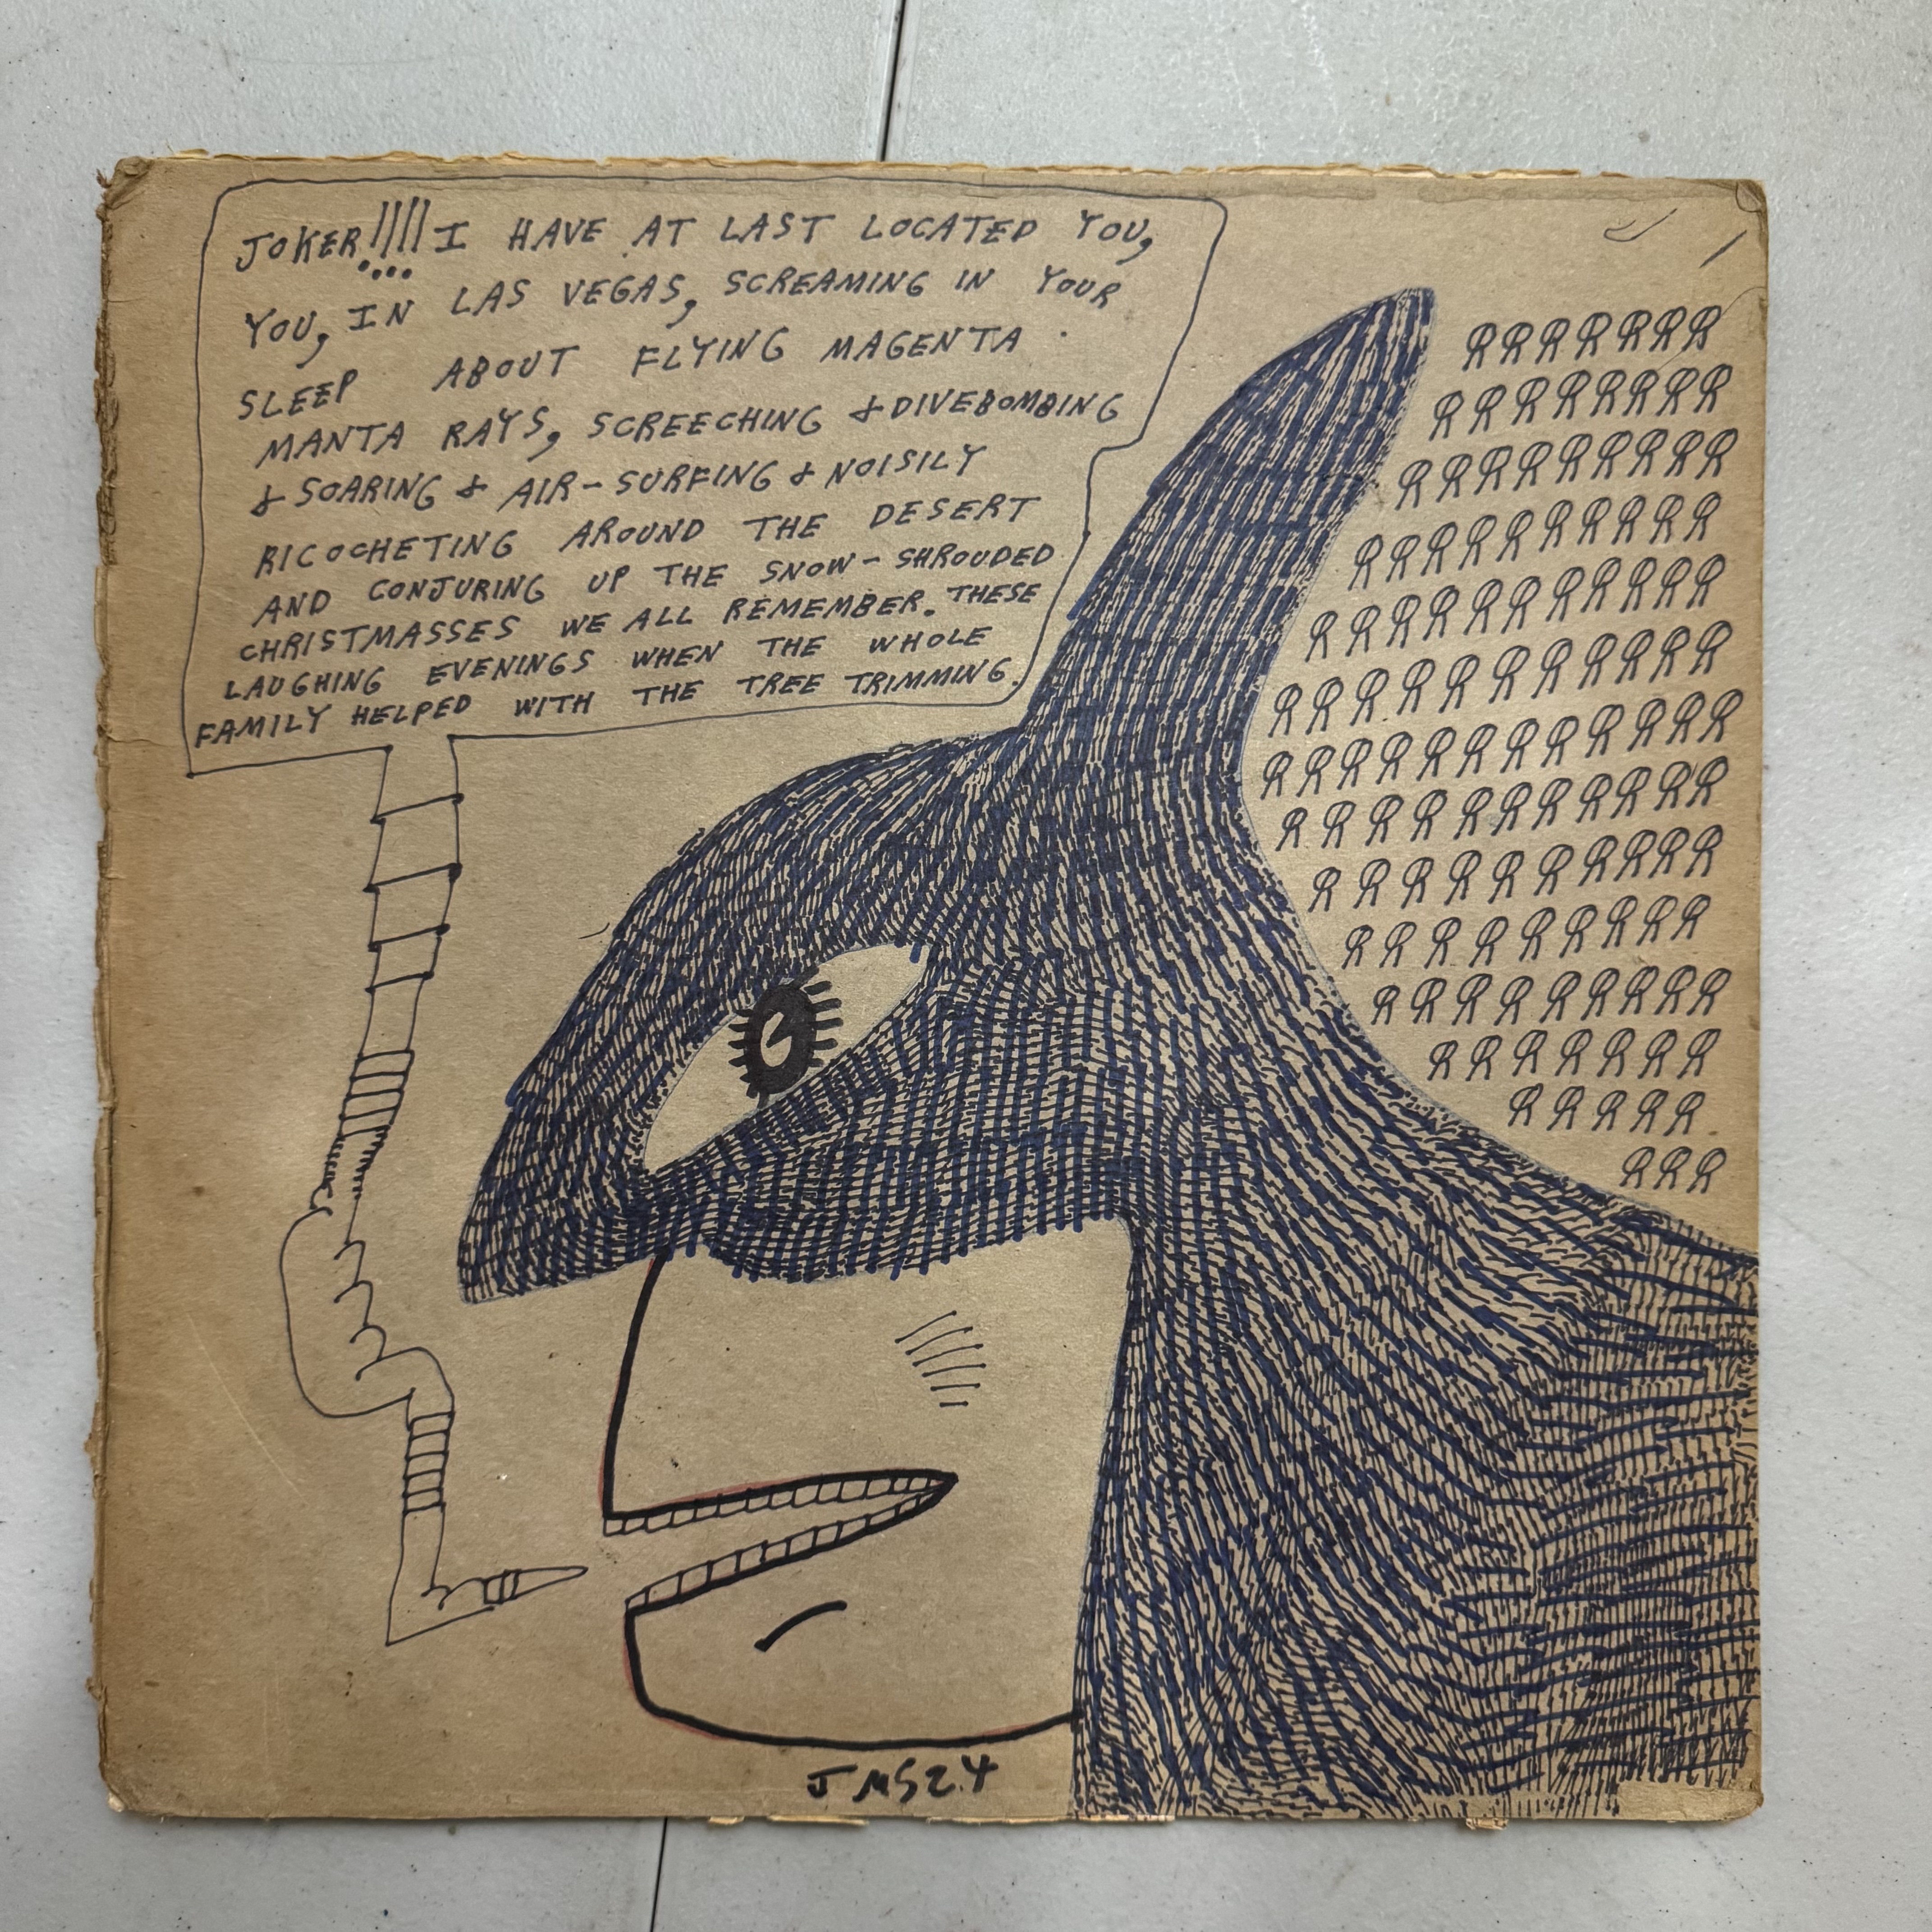 JOKER!!!! I HAVE AT LAST LOCATED YOU,
YOU, IN LAS VEGAS, SCREAMING IN YOUR
SLEEP ABOUT FLYING MAGENTA
MANTA RAYS, SCREECHING & DIVEBOMBING
& SOARING & AIR-SURFING & NOISILY
RICOCHETING AROUND THE DESERT
AND CONJURING UP THE SNOW-SHROUDED
CHRISTMASSES WE ALL REMEMBER. THESE
LAUGHING EVENINGS WHEN THE WHOLE
FAMILY HELPED WITH THE TREE TRIMMING.
RRRRRRR
RRRRRRRR
RRRRRRRRR
RRRRRRRRRR
RRRRRRRRRRR
RRRRRRRRRRR
RRRRRRRRRRRR
RRRRRRRRRRR
RRRRRRRRRR
RRRRRRRRR
RRRRRRRRR
RRRRRRR
RRRRR
RRR
JMS2.4